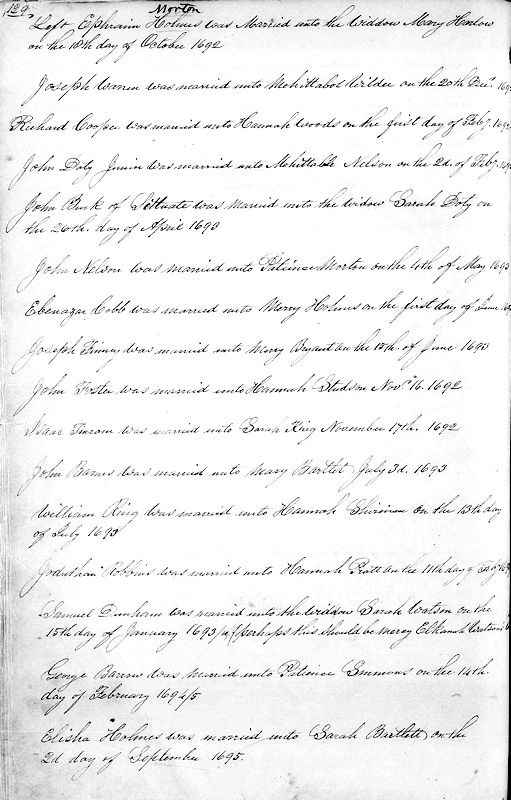 129
Morton
Left Ephraim Holmes was Married unto the Widdow Mary Harlow
on the 18th day of October 1692
Joseph Waren was married unto Mehittabol Wilder on the 20th Decr 169
Richard Cooper was married unto Hannah Woods on the first day of Feby. 169
John Doty Junior was married unto Mehittable Nelson on the 2d. of Feby. 169
John Buck of Sittuate was married unto the widow Sarah Doty on
the 26th. day of April 1693
John Nelson was married unto Patience Morton on the 4th of May 1693
Ebenazar Cobb was married unto Mercy Holmes on the first day of June 169
Joseph Finney was married unto Mercy Bryant on the 15th. of June 1693
John Foster was married unto Hannah Studson Novr 16. 1692
Isaac was married unto Sarah King November 17th. 1692
John Barnes was married unto Mary Bartlet July 3d. 1693
William Ring was married unto Hannah on the 13th day
of July 1693
Robbins was married unto Hannah Pratt on the 11th day of
Samuel Dunham was married unto the widdow Sarah Watson on the
15th day of January 1693/4 (perhaps this should be mercy Elkanah Watsons
George Barrow was married unto Patience Simmons on the 14th
day of February 1694/5
Elisha Holmes was married unto Sarah Bartlett on the
2d day of September 1695.